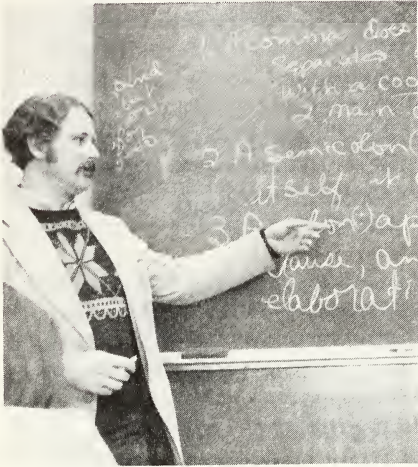 1. A comma does
separates
with a coo
2 main
and
but
or
2 A semicolon(
itself it
3 A colon(:) ap
clause, an
elaborati